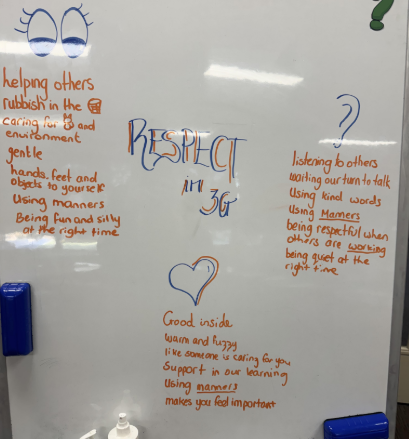 ?
helping others
rubbish in the
caring for and
environment
gentle
hands, feet and
objects to yourself
Using manners
Being fun and silly
at the right time
RESPECT
in 3G
?
listening to others
waiting our turn to talk
Using kind words
Using Manners
being respectful when
others are working
being quiet at the
right time
Good inside
warm and fuzzy
like someone is caring for you
Support in our learning
Using manners
makes you feel important